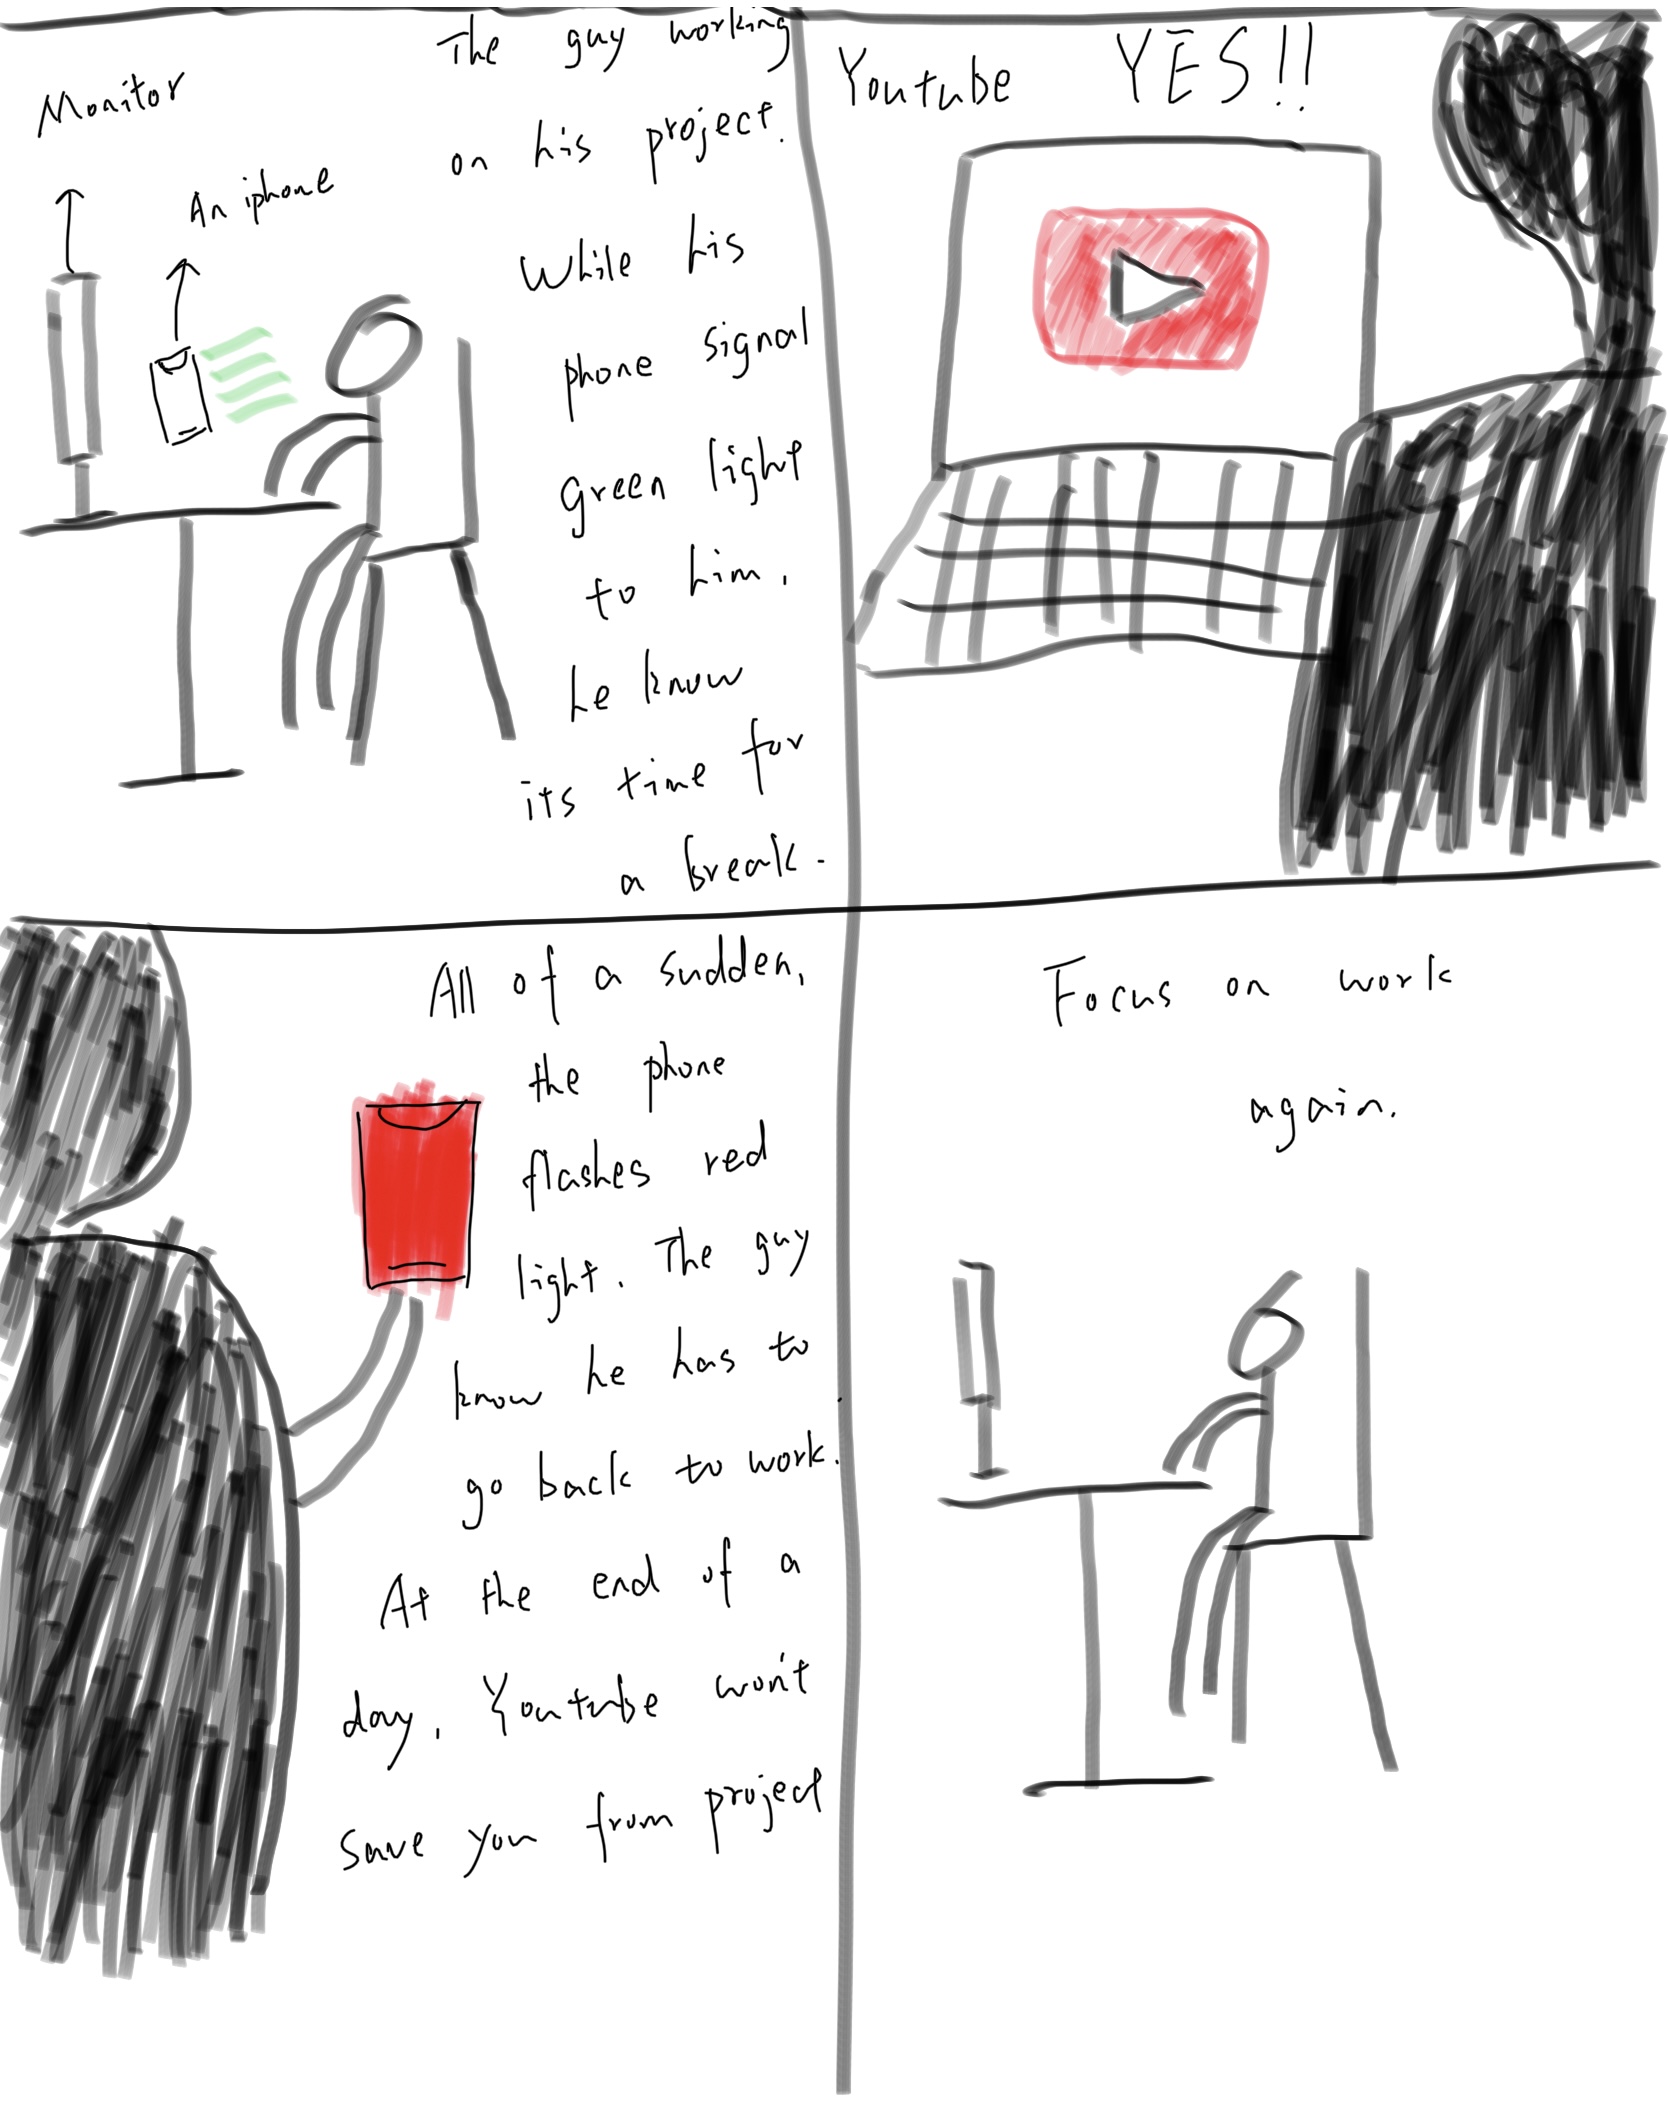 Monitor
An iphone
The guy working
on his project.
While his
phone signal
green light
to him,
he know
its time for
a break.
Youtube YES!!
All of a sudden,
the phone
flashes red
light. The guy
know he has to
go back to work.
At the end of a
day, Youtube won't
save you from project
Focus on work
again.